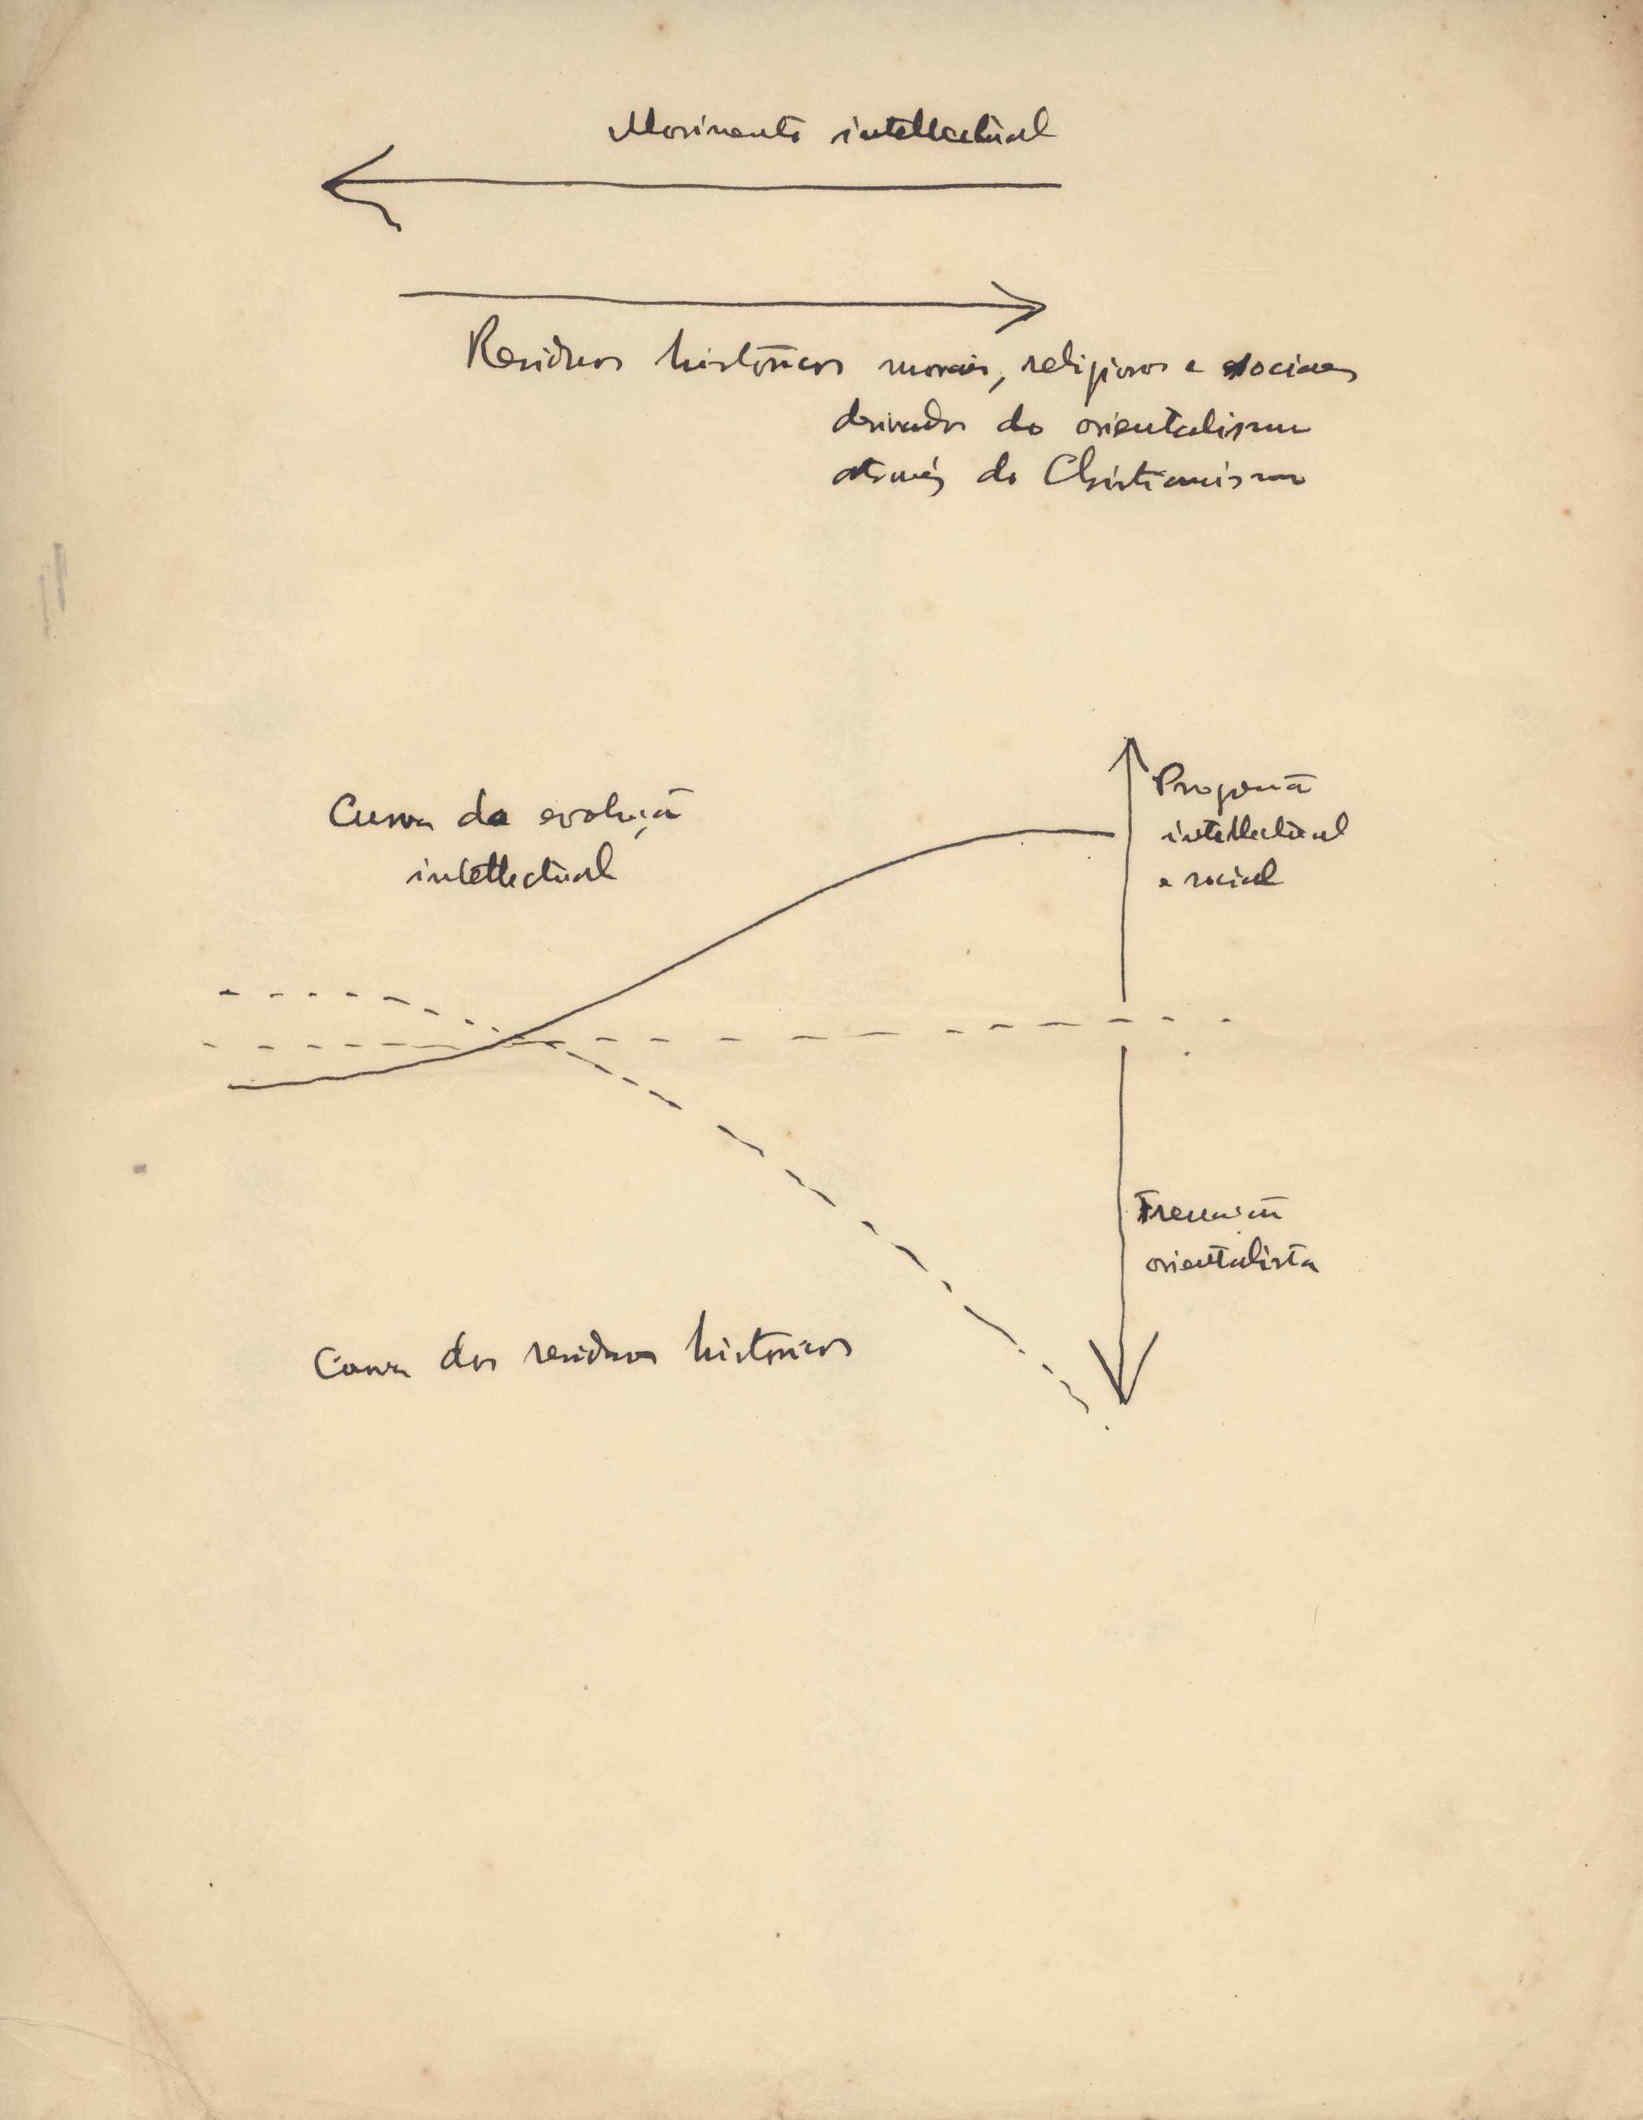 Movimento intellectual
Residuos históricos moraes, religiosos e sociaes
derivados do orientalismo
através do Christianismo
Curva da evolução
intellectual
Progressão
intellectual
e social
orientalista
Curva dos residuos historicos